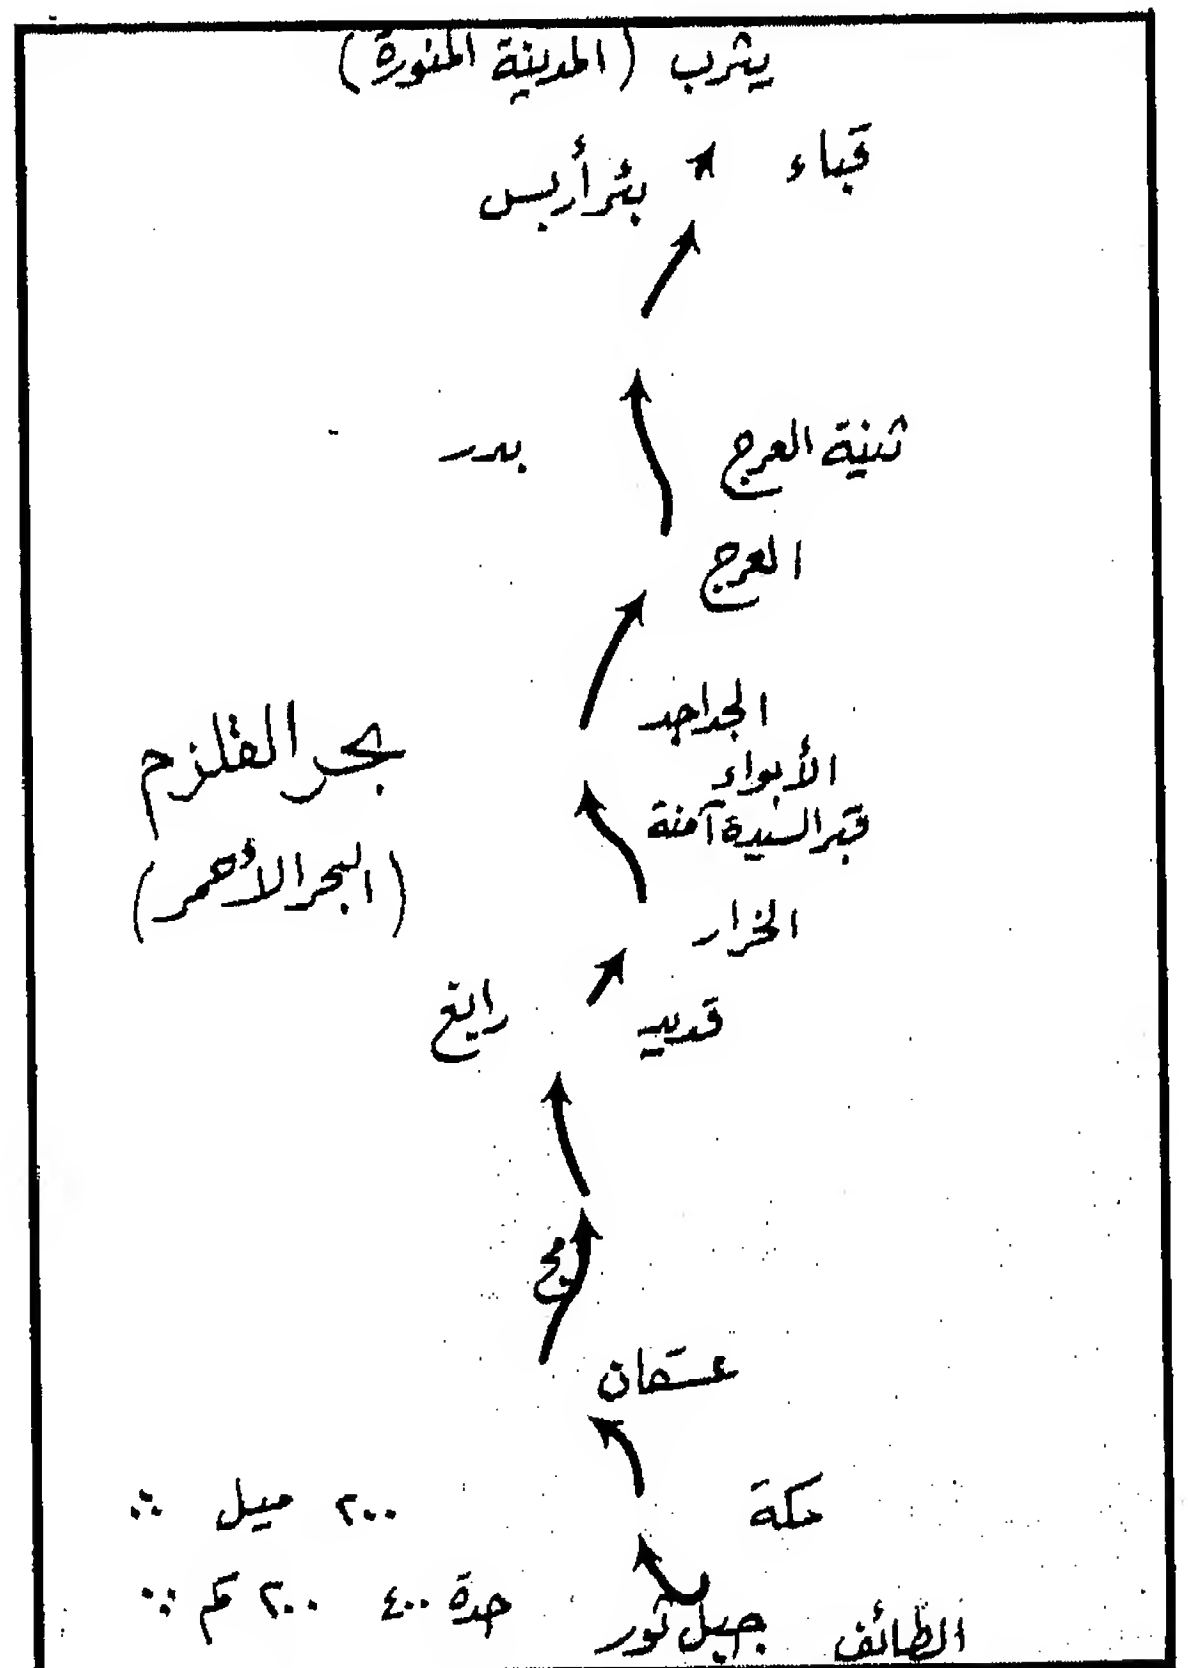 يثرب (المدينة المنورة)
قباء
بئر أريس
ثنية العرج
بدر
العرج
الجداجد
الأبواء
قبر السيدة آمنة
بحر القلزم
(البحر الأحمر)
الخرار
رابغ
قديد
عسفان
مكة
٢٠٠ ميل
جدة ٤٠٠ ٢٠٠ كم
الطائف
جبل ثور